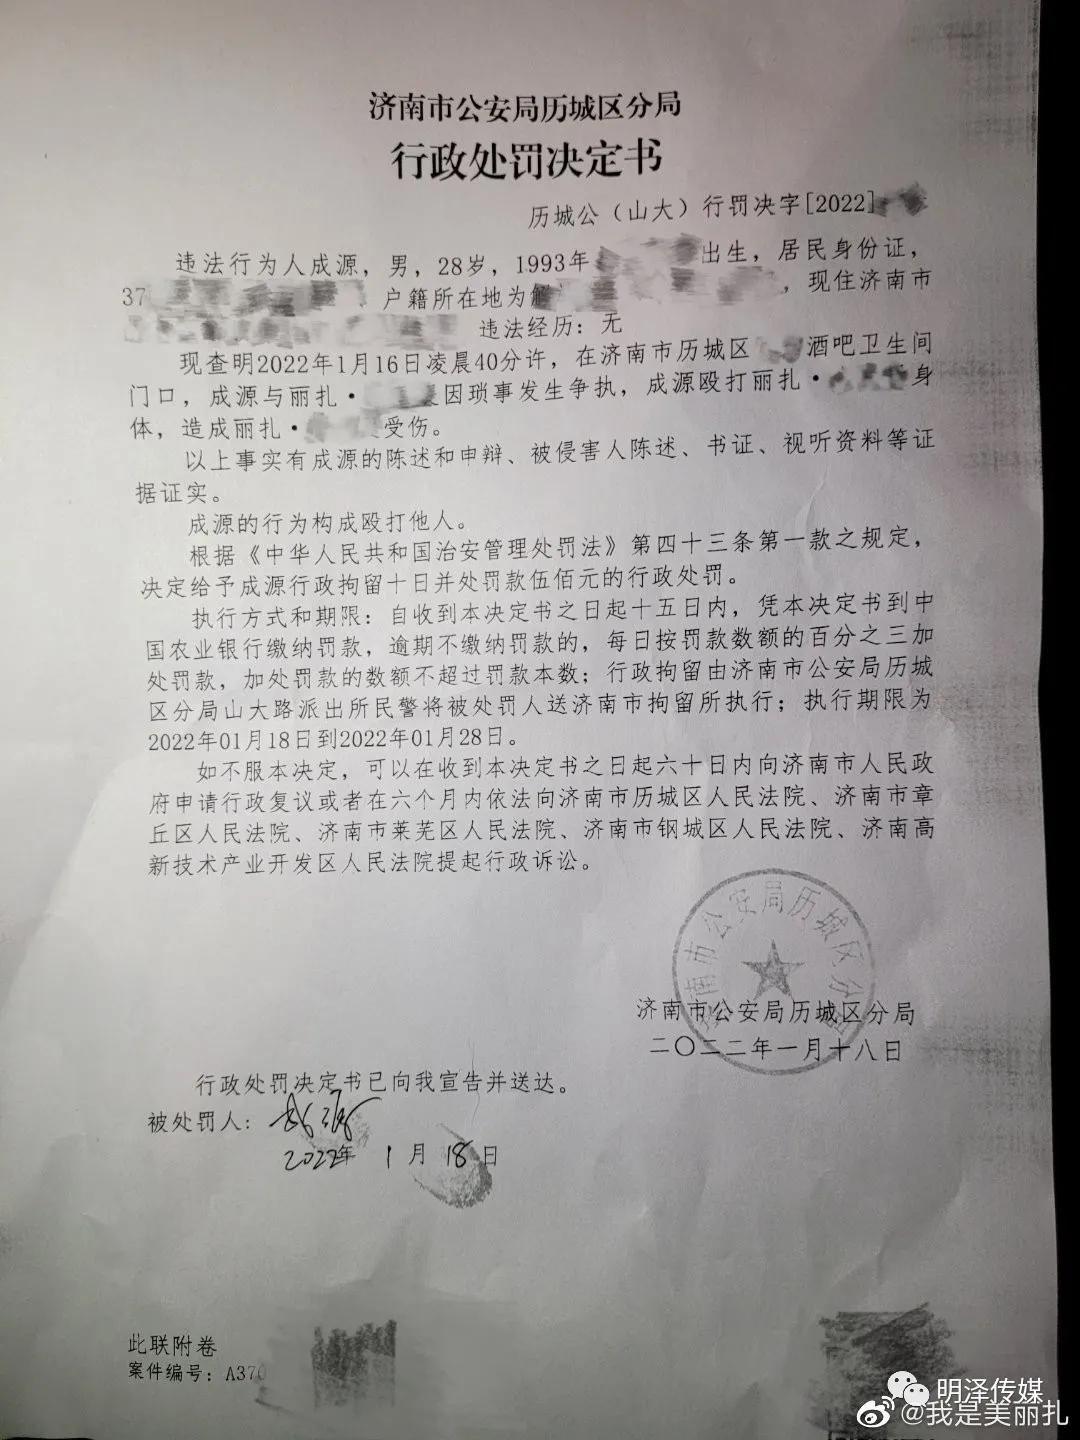 济南市公安局历城区分局
行政处罚决定书
历城公（山大）行罚决字[2022]
违法行为人成源，男，28岁，1993年 出生，居民身份证，
37 户籍所在地为 ，现住济南市
违法经历：无
现查明2022年1月16日凌晨40分许，在济南市历城区 酒吧卫生间
门口，成源与丽扎· 因琐事发生争执，成源殴打丽扎· 身
体，造成丽扎· 受伤。
以上事实有成源的陈述和申辩、被侵害人陈述、书证、视听资料等证
据证实。
成源的行为构成殴打他人。
根据《中华人民共和国治安管理处罚法》第四十三条第一款之规定，
决定给予成源行政拘留十日并处罚款伍佰元的行政处罚。
执行方式和期限：自收到本决定书之日起十五日内，凭本决定书到中
国农业银行缴纳罚款，逾期不缴纳罚款的，每日按罚款数额的百分之三加
处罚款，加处罚款的数额不超过罚款本数；行政拘留由济南市公安局历城
区分局山大路派出所民警将被处罚人送济南市拘留所执行；执行期限为
2022年01月18日到2022年01月28日。
如不服本决定，可以在收到本决定书之日起六十日内向济南市人民政
府申请行政复议或者在六个月内依法向济南市历城区人民法院、济南市章
丘区人民法院、济南市莱芜区人民法院、济南市钢城区人民法院、济南高
新技术产业开发区人民法院提起行政诉讼。
济南市公安局历城区分局
济南市公安局历城区分局
二〇二二年一月十八日
行政处罚决定书已向我宣告并送达。
被处罚人：成源
2022年 1月 18日
此联附卷
案件编号：A370
明泽传媒
@我是美丽扎